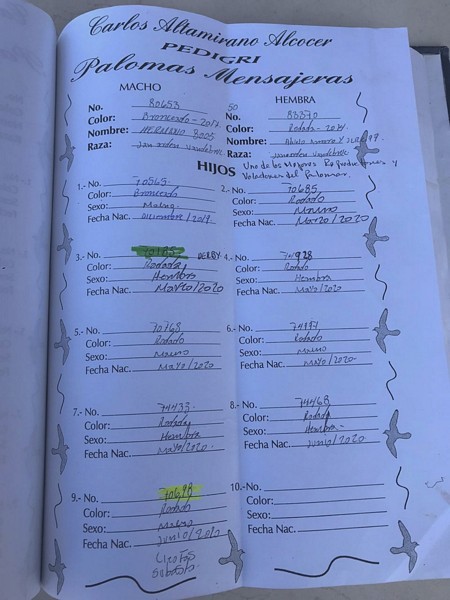 Carlos Altamirano Alcocer
PEDIGRI
Palomas Mensajeras
MACHO
No. 80653
Color: Bronceado - 2017
Nombre: HERMANO 8005
Raza: Jan arden Vandebrie
50 HEMBRA
No. 83370
Color: Rodada - 2014
Nombre:
Raza: Janarden Vandebrie
HIJOS
Uno de los Mejores Reproductores y
Voladores del Palomar
1.- No. 70565
Color: Bronceado
Sexo: Macho
Fecha Nac. Diciembre/2019
2.- No. 70685
Color: Rodado
Sexo: Macho
Fecha Nac. Marzo/2020
3.- No. DERBY
Color: Rodada
Sexo: Hembra
Fecha Nac. Marzo/2020
4.- No. 74928
Color: Rodado
Sexo: Hembra
Fecha Nac. Mayo/2020
5.- No. 70768
Color: Rodado
Sexo: Macho
Fecha Nac. Mayo/2020
6.- No.
Color: Rodado
Sexo: Macho
Fecha Nac. Mayo/2020
7.- No. 74433
Color: Rodada
Sexo: Hembra
Fecha Nac. Mayo/2020
8.- No. 74468
Color: Rodada
Sexo: Hembra
Fecha Nac. Junio/2020
9.- No. 70698
Color: Rodado
Sexo: Macho
Fecha Nac. Junio/2020
10.-No.
Color:
Sexo:
Fecha Nac.